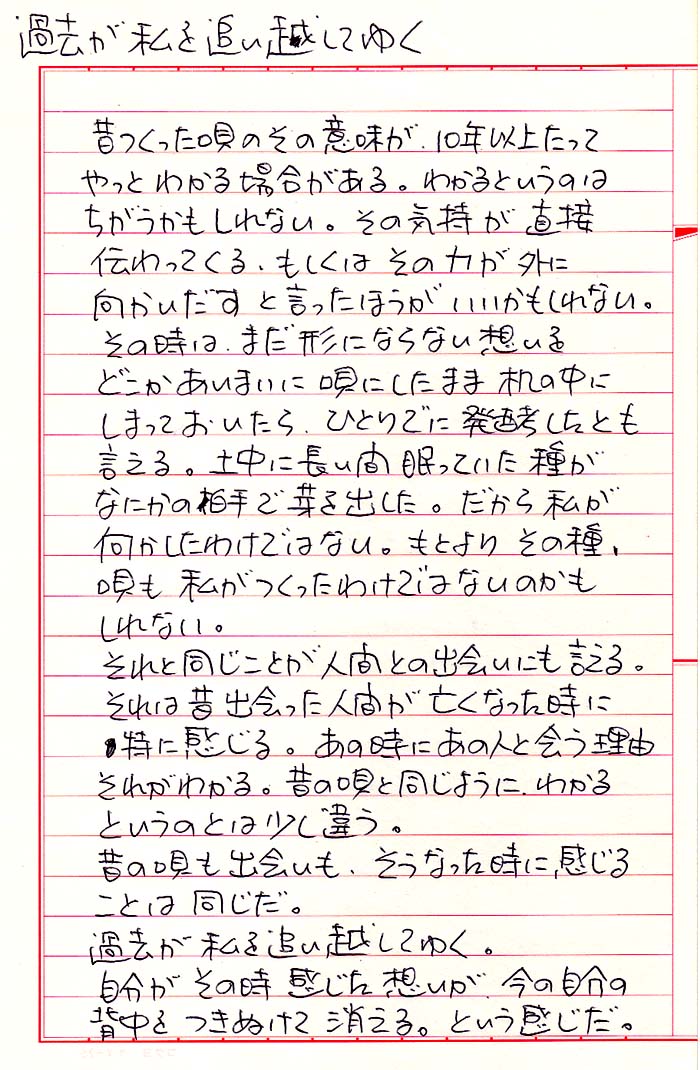 過去が私を追い越してゆく
昔つくった唄のその意味が、10年以上たって
やっとわかる場合がある。わかるというのは
ちがうかもしれない。その気持が直接
伝わってくる、もしくはその力が外に
向かいだすと言ったほうがいいかもしれない。
その時は、まだ形にならない想いを
どこかあいまいに唄にしたまま机の中に
しまっておいたら、ひとりでに発酵したとも
言える。土中に長い間眠っていた種が
なにかの拍手で芽を出した。だから私が
何かしたわけではない。もとよりその種、
唄も私がつくったわけではないのかも
しれない。
それと同じことが人間との出会いにも言える。
それは昔出会った人間が亡くなった時に
特に感じる。あの時にあの人と会う理由
それがわかる。昔の唄と同じように、わかる
というのとは少し違う。
昔の唄も出会いも、そうなった時に、感じる
ことは同じだ。
過去が私を追い越してゆく。
自分がその時感じた想いが、今の自分の
背中をつきぬけて消える。という感じだ。